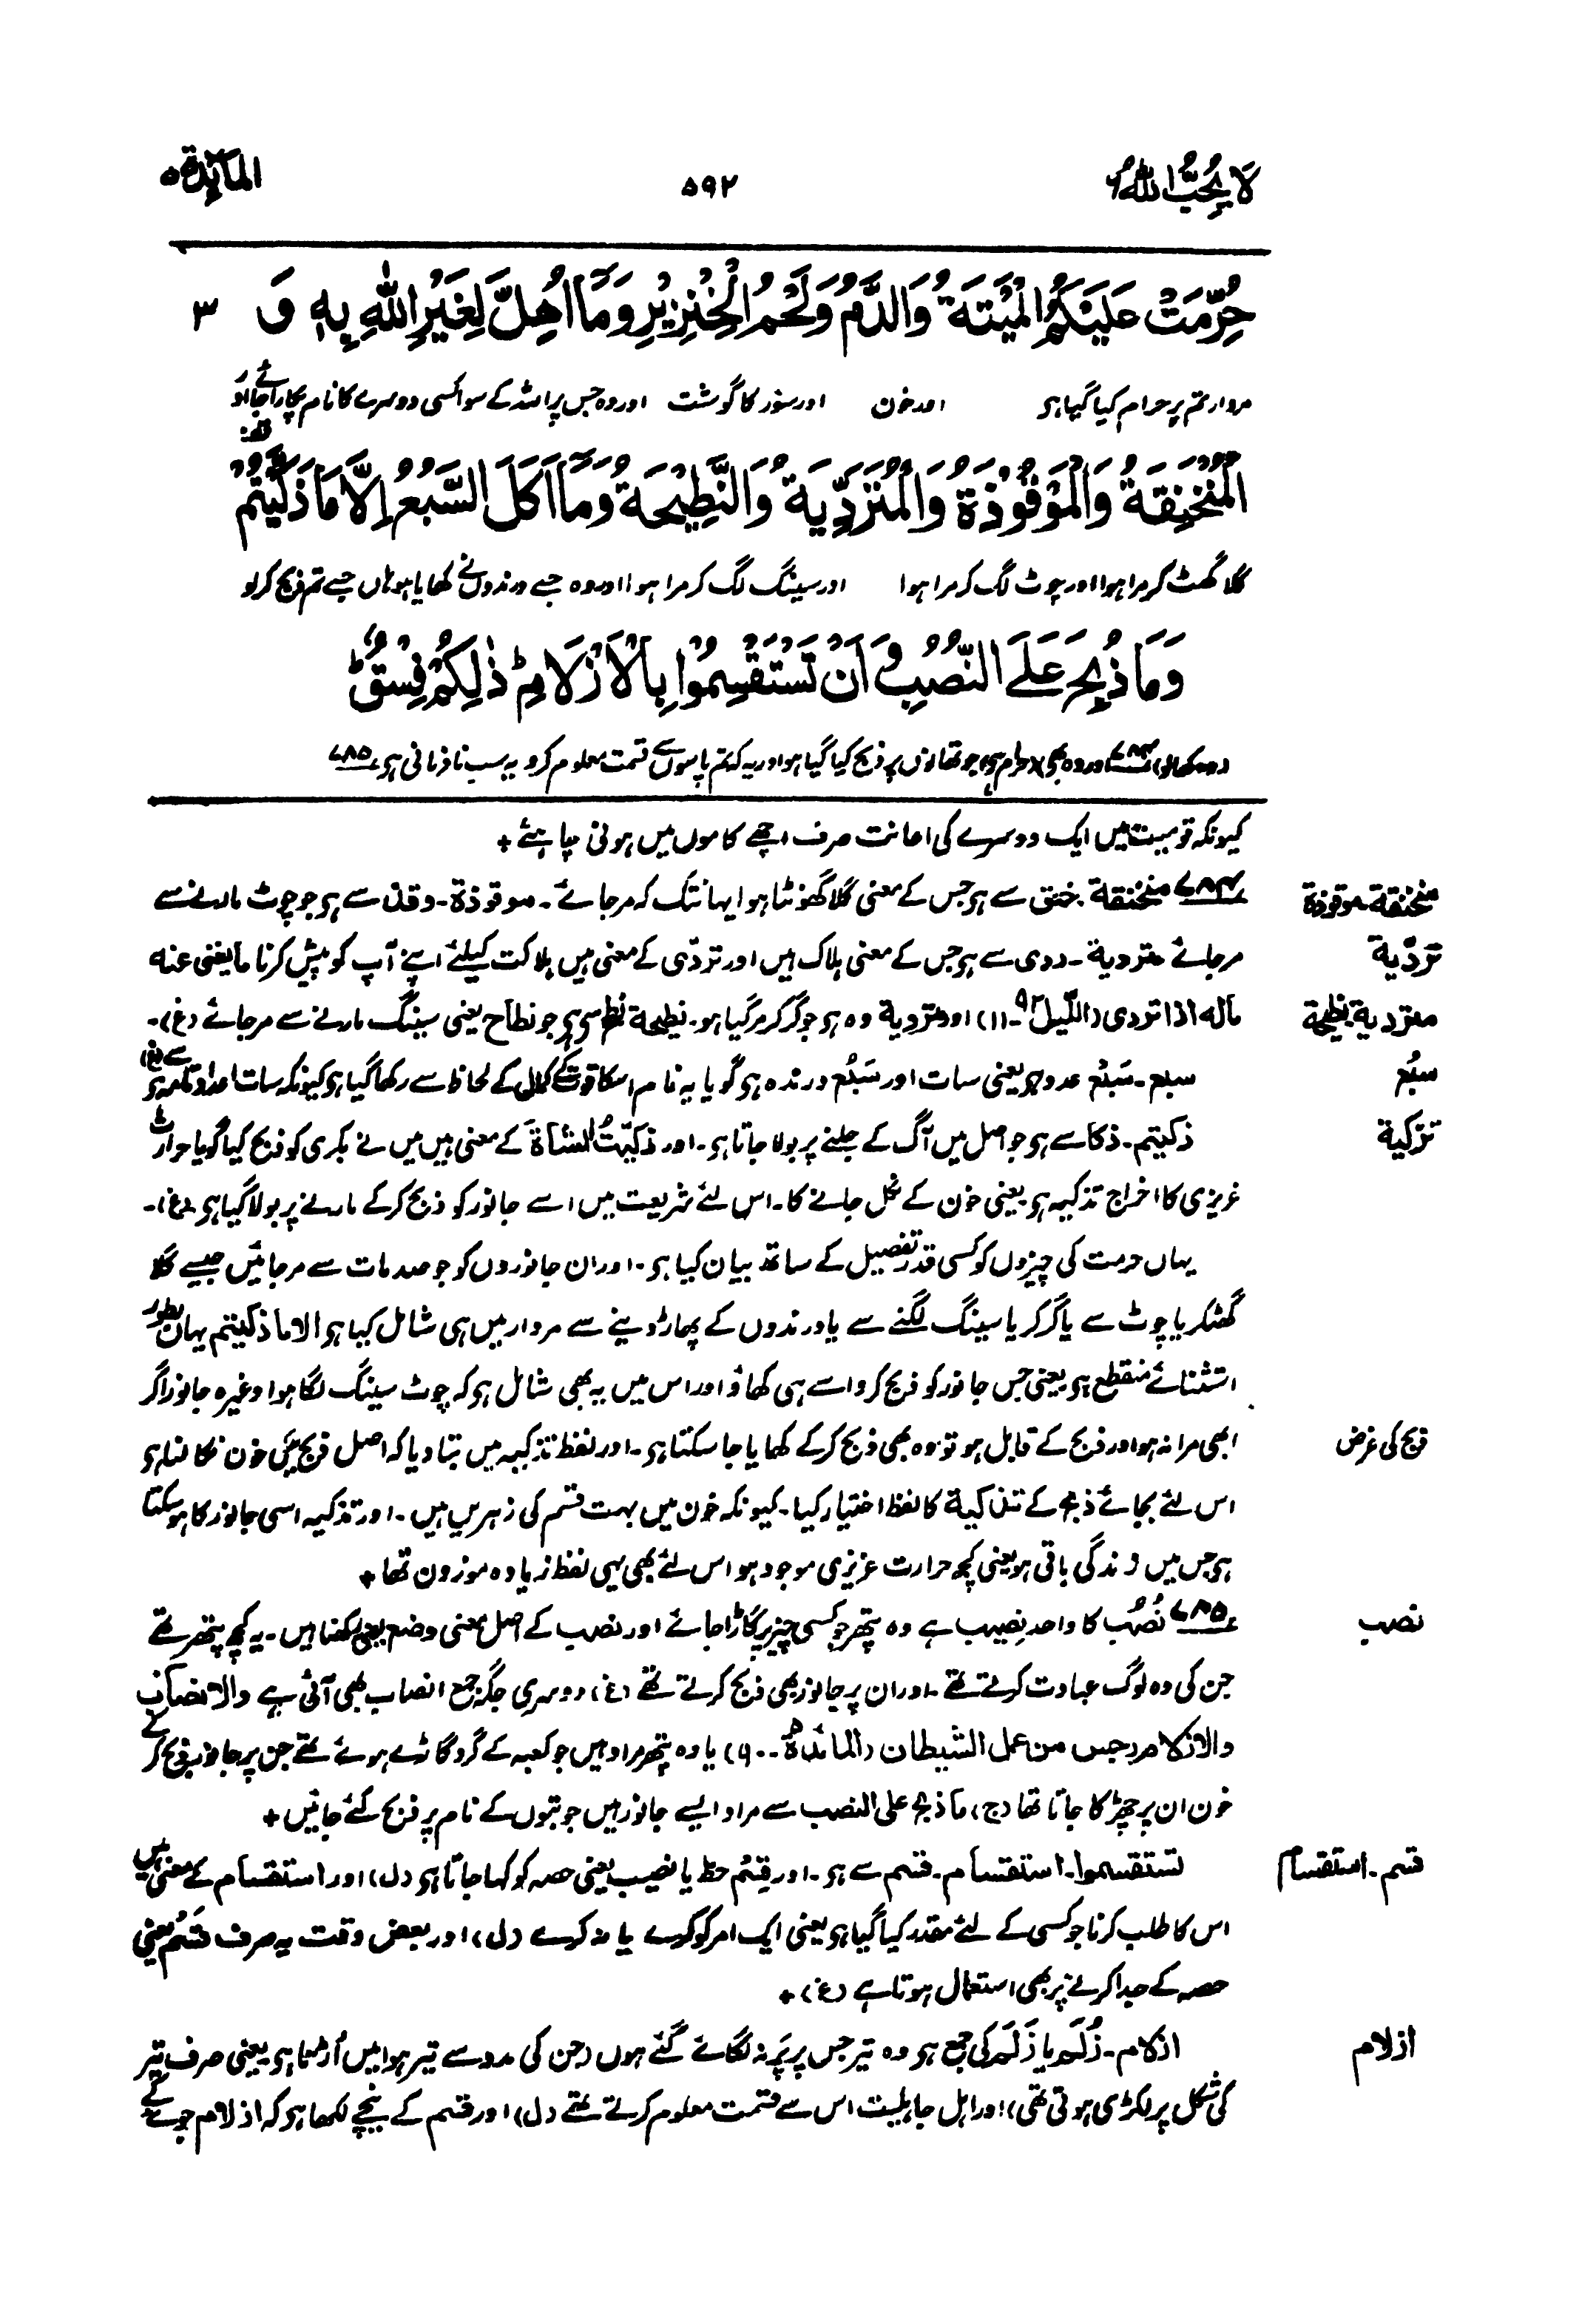 لَا يُحِبُّ اللّٰهُ ٦
٥٩٢
المَآئِدَة ٥
حُرِّمَتْ عَلَيْكُمُ الْمَيْتَةُ وَالدَّمُ وَلَحْمُ الْخِنْزِيْرِ وَمَآ اُهِلَّ لِغَيْرِ اللّٰهِ بِهٖ وَ ٣
مردار تم پر حرام کیا گیا ہو اور خون اور سؤر کا گوشت اور وہ جس پر اللہ کے سوا کسی دوسرے کا نام پکارا جائے اور
الْمُنْخَنِقَةُ وَالْمَوْقُوْذَةُ وَالْمُتَرَدِّيَةُ وَالنَّطِيْحَةُ وَمَآ اَكَلَ السَّبُعُ اِلَّا مَا ذَكَّيْتُمْ قف
گلا گھٹ کر مرا ہوا اور چوٹ لگ کر مرا ہوا اور سینگ لگ کر مرا ہوا اور وہ جسے درندوں نے کھایا ہو ہاں جسے تم ذبح کرلو
وَمَا ذُبِحَ عَلَى النُّصُبِ وَاَنْ تَسْتَقْسِمُوْا بِالْاَزْلَامِ ؕ ذٰلِكُمْ فِسْقٌ ؕ
(وہ کھالو) ٧٨٤ اور وہ بھی (حرام ہو) جو تھانوں پر ذبح کیا گیا ہو اور یہ کہ تم پاسوں سے قسمت معلوم کرو یہ سب نافرمانی ہو ٧٨٥
کیونکہ قومیت میں ایک دوسرے کی اعانت صرف اچھے کاموں میں ہونی چاہئے +
منخنقة ۔ موقوذة
٧٨٤ منخنقة ۔ خنق سے ہو جس کے معنی گلا گھونٹنا ہوا یہانتک کہ مرجائے ۔ موقوذة ۔ وقذ سے ہو جو چوٹ مارنے سے
تردّیة
مرجائے متردیة ۔ ردی سے ہو جس کے معنی ہلاک ہیں اور تردّی کے معنی ہیں ہلاکت کیلئے اپنے آپ کو پیش کرنا ما یغنی عنه
متردیة ۔ نطیحة
ماله اذا تردی (اللّیل ٩٢ ۔ ١١) اور متردیة وہ ہو جو گر کر مرگیا ہو ۔ نطیحة نطح سے ہو جو نطاح یعنی سینگ مارنے سے مرجائے (غ) ۔
سبُع
سبع ۔ سَبْع عدد ہو یعنی سات اور سَبُع درندہ ہو گویا یہ نام اسکا قوت کے کمال کے لحاظ سے رکھا گیا ہو کیونکہ سات اعداد تامہ سے ہو (غ)
تزکیة
ذکیتم ۔ ذکا سے ہو جو اصل میں آگ کے جلنے پر بولا جاتا ہو ۔ اور ذکّیتُ الشاةَ کے معنی ہیں میں نے بکری کو ذبح کیا گویا حرارت
غریزی کا اخراج تذکیہ ہو یعنی خون کے نکل جانے کا ۔ اس لئے شریعت میں اسے جانور کو ذبح کرکے مارنے پر بولا گیا ہو (غ) ۔
یہاں حرمت کی چیزوں کو کسی قدر تفصیل کے ساتھ بیان کیا ہو ۔ اور ان جانوروں کو جو صدمات سے مرجائیں جیسے گلا
گھٹکر یا چوٹ سے یا گر کر یا سینگ لگنے سے یا درندوں کے پھاڑ دینے سے مردار میں ہی شامل کیا ہو الا ما ذکیتم یہاں بطور
استثنائے منقطع ہو یعنی جس جانور کو ذبح کرو اسے ہی کھاؤ اور اس میں یہ بھی شامل ہو کہ چوٹ سینگ لگا ہوا وغیرہ جانور اگر
ذبح کی غرض
ابھی مرا نہ ہو اور ذبح کے قابل ہو تو وہ بھی ذبح کرکے کھایا جا سکتا ہو ۔ اور لفظ تذکیہ میں بتا دیا کہ اصل ذبح میں خون نکالنا ہو
اس لئے بجائے ذبح کے تذکیة کا لفظ اختیار کیا ۔ کیونکہ خون میں بہت قسم کی زہریں ہیں ۔ اور تذکیہ اسی جانور کا ہو سکتا
ہو جس میں زندگی باقی ہو یعنی کچھ حرارت غریزی موجود ہو اس لئے بھی یہی لفظ زیادہ موزون تھا +
نصب
٧٨٥ نُصُب کا واحد نصیب ہے وہ پتھر جو کسی چیز پر گاڑا جائے اور نصب کے اصل معنی وضع یعنی رکھنا ہیں ۔ یہ کچھ پتھر تھے
جن کی وہ لوگ عبادت کرتے تھے ۔ اور ان پر جانور بھی ذبح کرتے تھے (غ) دوسری جگہ جمع انصاب بھی آئی ہے والانصاب
والازلام رجس من عمل الشیطان (المائدة ٥ ۔ ٩٠) یا وہ پتھر مراد ہیں جو کعبہ کے گرد گاڑے ہوئے تھے جن پر جانور ذبح کرکے
خون ان پر چھڑکا جاتا تھا (ج) ما ذبح علی النصب سے مراد ایسے جانور ہیں جو بتوں کے نام پر ذبح کئے جائیں +
قسم ۔ استقسام
تستقسموا ۔ استقسام ۔ قسم سے ہو ۔ اور قِسْم حظ یا نصیب یعنی حصہ کو کہا جاتا ہو (ل) اور استقسام کے معنی ہیں
اس کا طلب کرنا جو کسی کے لئے مقدر کیا گیا ہو یعنی ایک امر کو کرے یا نہ کرے (ل) اور بعض وقت یہ صرف قَسْم یعنی
حصہ کے جدا کرنے پر بھی استعمال ہوتا ہے (غ) +
ازلام
ازلام ۔ زُلَم یا زَلَم کی جمع ہو وہ تیر جس پر پَر نہ لگائے گئے ہوں (جن کی مدد سے تیر ہوا میں اُڑتا ہو یعنی صرف تیر
کی شکل پر لکڑی ہوتی تھی) اور اہل جاہلیت اس سے قسمت معلوم کرتے تھے (ل) اور قسم کے نیچے لکھا ہو کہ ازلام جوئے کے